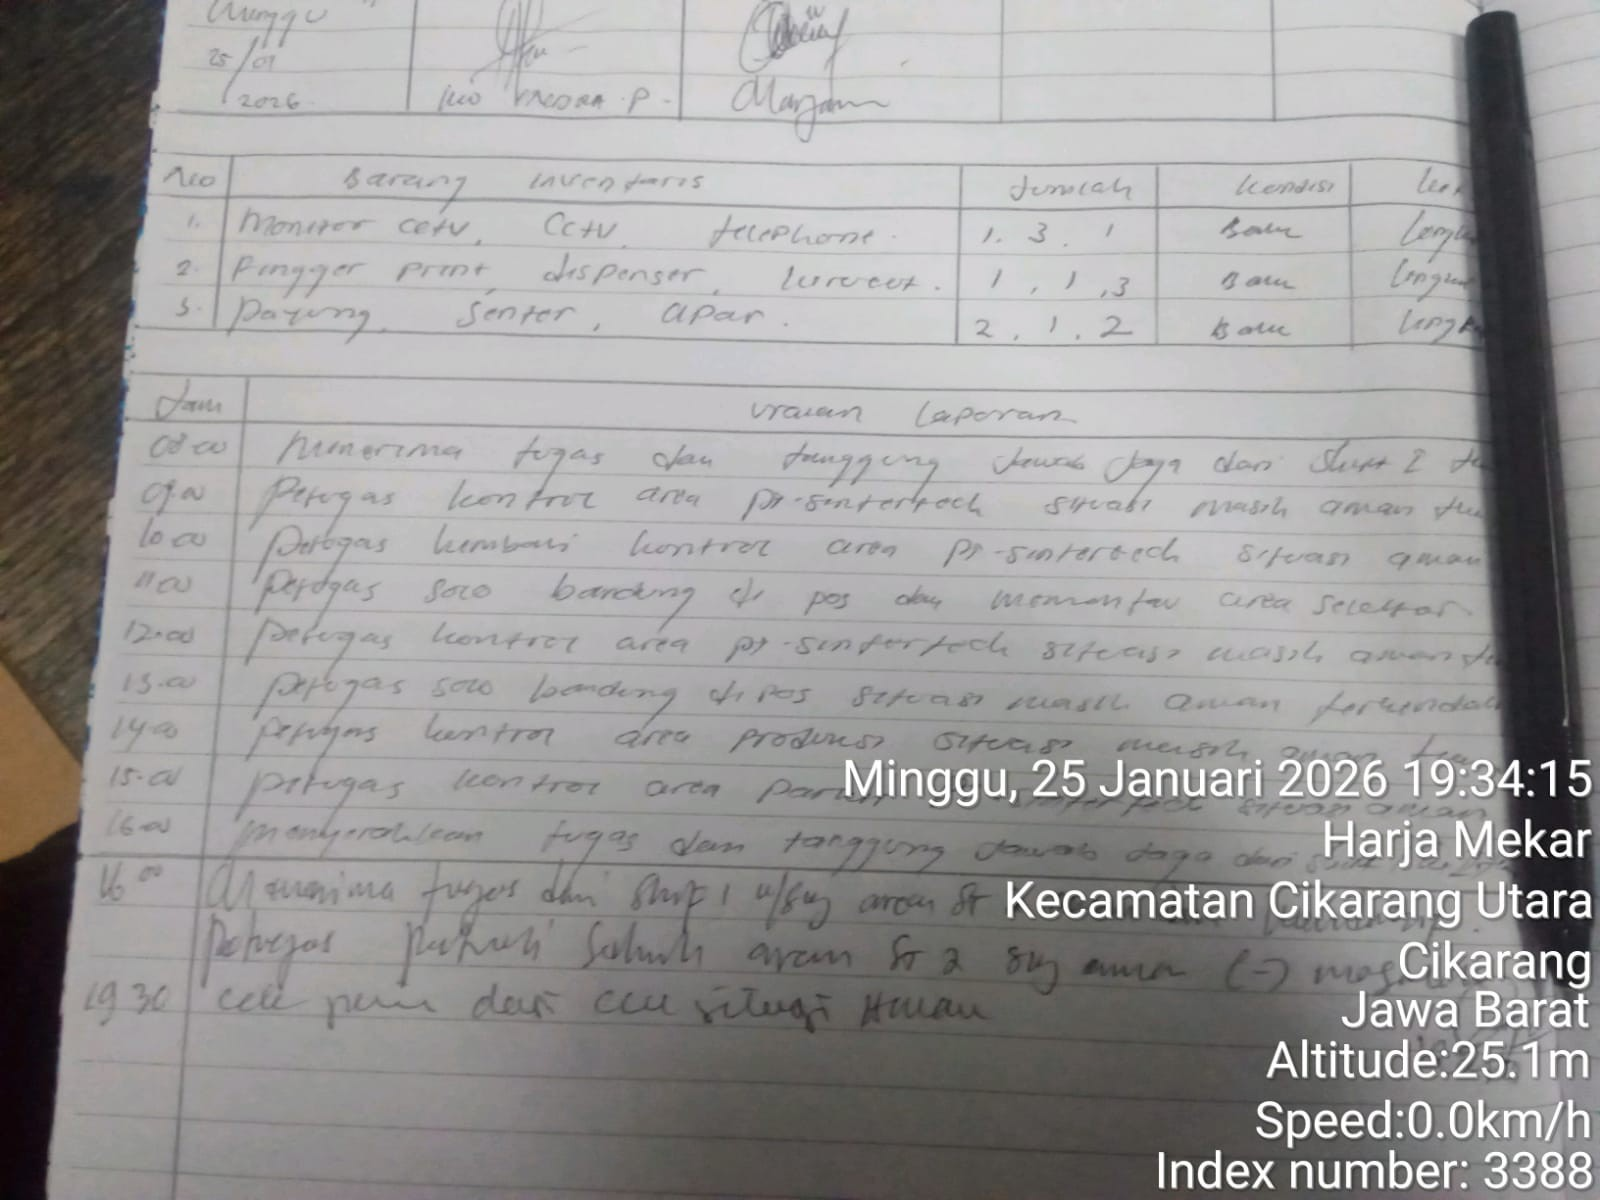 Minggu
25/01
2026
P.
Maryam
No Barang inventaris Jumlah kondisi
1. Monitor cctv, Cctv, telephone. 1. 3. 1 Baik
2. Fingger print, dispenser, 1, 1, 3 Baik
3. payung, senter, apar. 2, 1, 2 Baik
Jam uraian Laporan
08.00 Menerima tugas dan tanggung Jawab Jaga dari Shift 2
09.00 Petugas kontrol area pt-sintertech situasi masih aman
10.00 petugas kembali kontrol area pt-sintertech situasi aman
11.00 petugas solo bandung di pos dan memantau area sekitar
12.00 petugas kontrol area pt-sintertech situasi masih aman
13.00 petugas solo bandung di pos situasi masih aman terkendali
14.00 petugas kontrol area produksi situasi masih aman
15.00 petugas kontrol area situasi aman
16.00 menyerahkan tugas dan tanggung Jawab Jaga dari
16 00 Menerima tugas dari Shif 1 area St
Petugas patroli area St 2 (-)
19 30 cek dari situasi Aman
Minggu, 25 Januari 2026 19:34:15
Harja Mekar
Kecamatan Cikarang Utara
Cikarang
Jawa Barat
Altitude:25.1m
Speed:0.0km/h
Index number: 3388